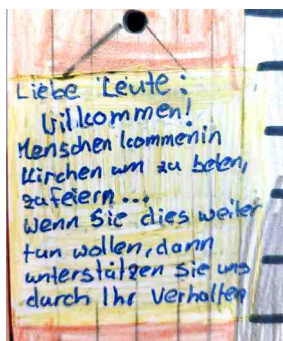 Liebe Leute:
Villkommen!
Menschen kommenin
Kirchen um zu beten,
zufeiern...
wenn Sie dies weiter
tun wollen, dann
unterstätzen Sie uns
durch Ihr Verhalten